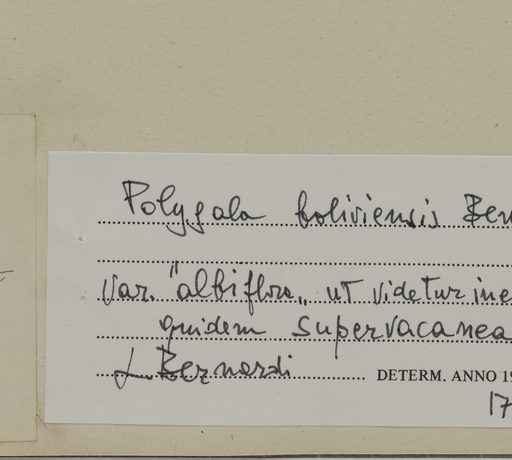 Polygala boliviensis Ben
Var. "albiflora„ ut videtur ine
quidem supervacanea
L. Bernardi DETERM. ANNO 19
17